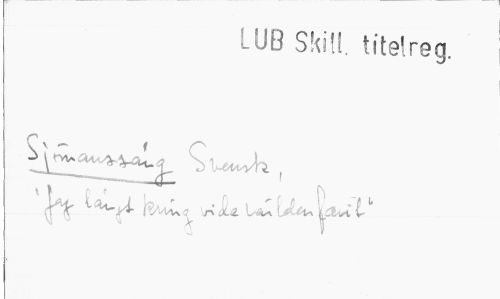 LUB Skill. titelreg.
Sjömanssång Svensk,
"Jag långt kring vida världen farit"